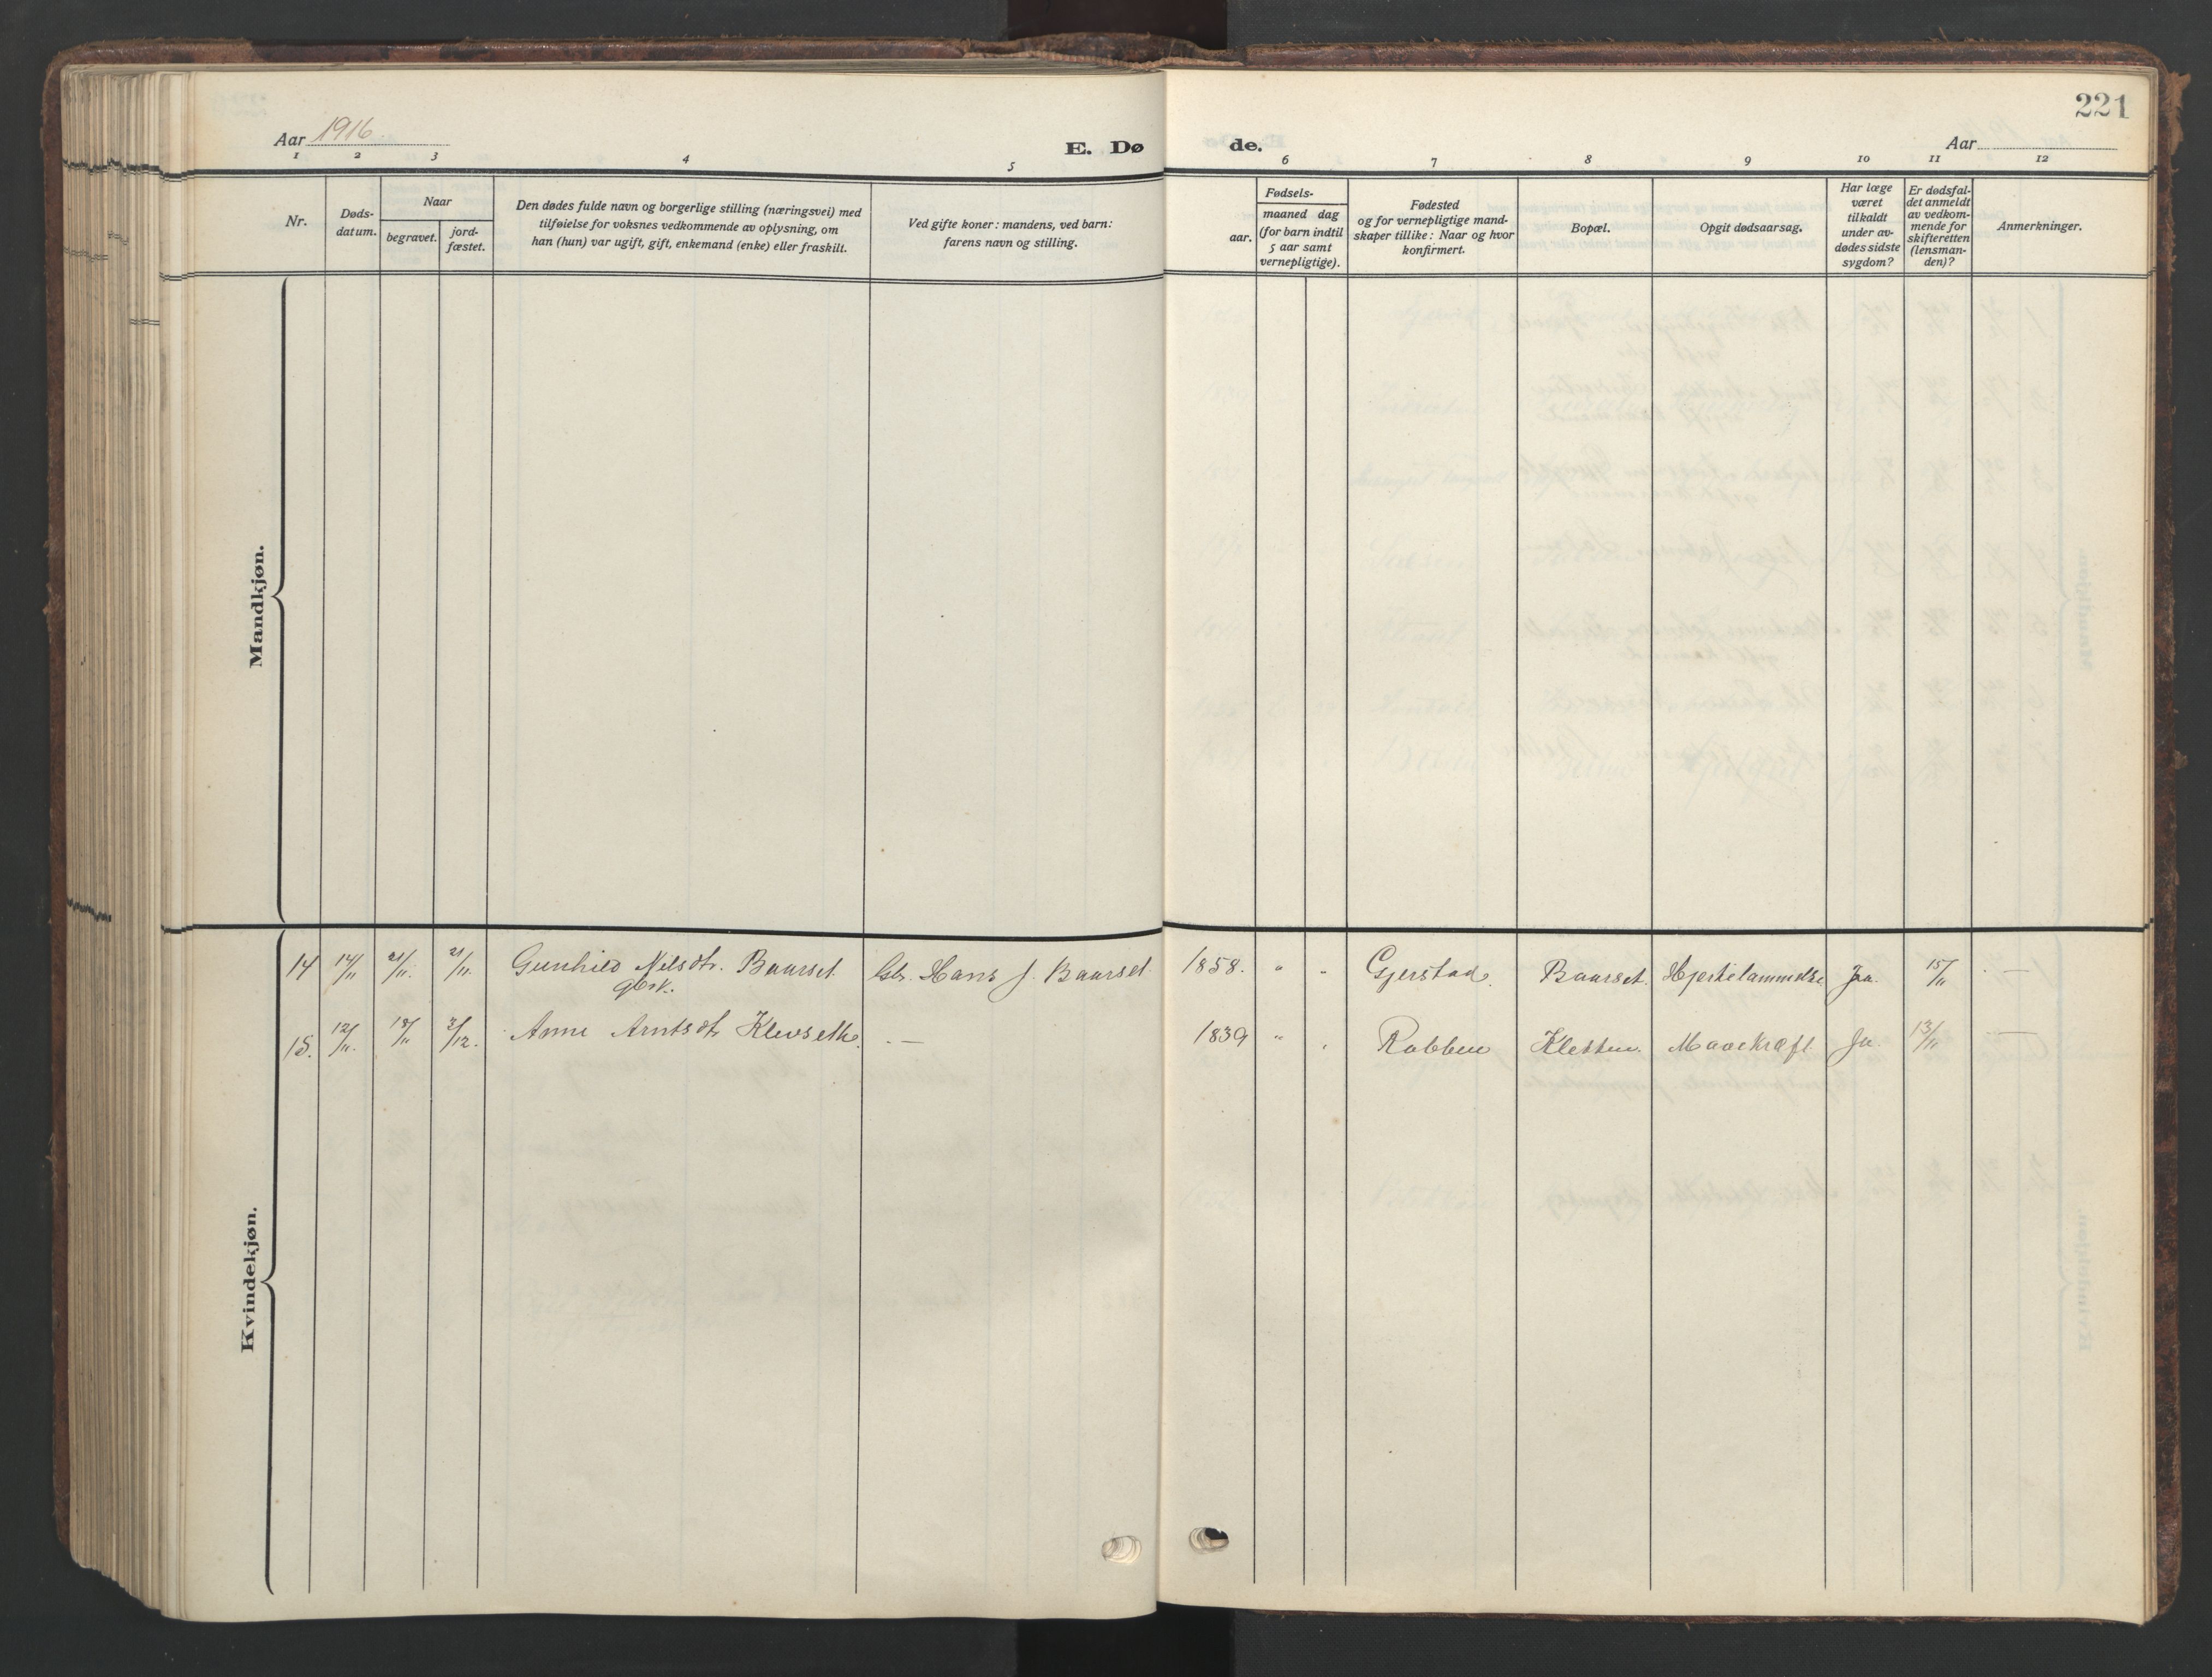 221
Aar 1916.
E. Dø de.
Aar
1 2 3 4 5 6 7 8 9 10 11 12
Nr.
Døds-
datum.
Naar
begravet.
jord-
fæstet.
Den dødes fulde navn og borgerlige stilling (næringsvei) med
tilføielse for voksnes vedkommende av oplysning, om
han (hun) var ugift, gift, enkemand (enke) eller fraskilt.
Ved gifte koner: mandens, ved barn:
farens navn og stilling.
Fødsels-
aar.
maaned dag
(for barn indtil
5 aar samt
vernepligtige).
Fødested
og for vernepligtige mand-
skaper tillike: Naar og hvor
konfirmert.
Bopæl.
Opgit dødsaarsag.
Har læge
været
tilkaldt
under av-
dødes sidste
sygdom?
Er dødsfal-
det anmeldt
av vedkom-
mende for
skifteretten
(lensman-
den)?
Anmerkninger.
Mandkjøn.
Kvindekjøn.
14 14/11 21/11. 21/11. Gunhild Nilsdtr. Baarset Gbr. Hans J. Baarset 1858. " " Gjerstad. Baarset. Hjertelammelse Ja. 15/11 —
gbrk.
15. 12/11. 18/11 3/12. Anne Arntsdtr Klevseth. — 1839 " . Rabben Kletten. Mavekræft Ja. 13/11 —